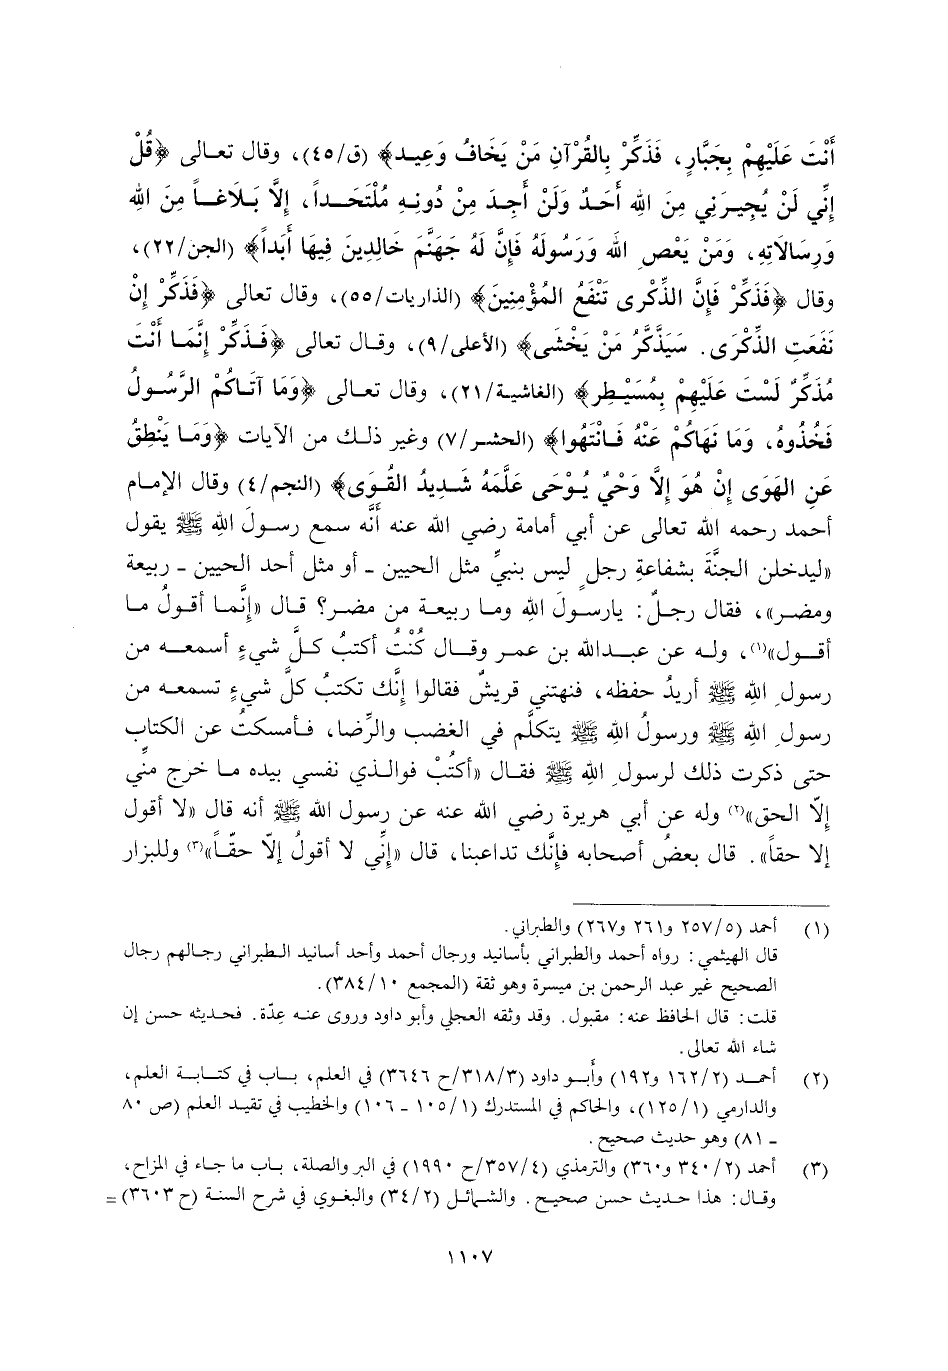 أَنْتَ عَلَيْهِمْ بِجَبَّارٍ، فَذَكِّرْ بِالقُرْآنِ مَنْ يَخَافُ وَعِيـد﴾ (ق/٤٥)، وقال تعـالى ﴿قُلْ
إِنِّي لَنْ يُجِيـرَنِي مِنَ اللهِ أَحَـدٌ وَلَنْ أَجِـدَ مِنْ دُونِـهِ مُلْتَحَـداً، إِلَّا بَـلَاغـاً مِنَ اللهِ
وَرِسَالَاتِهِ، وَمَنْ يَعْصِ اللهَ وَرَسُولَهُ فَإِنَّ لَهُ جَهَنَّمَ خَالِدِينَ فِيهَا أَبَداً﴾ (الجن/٢٢)،
وقال ﴿فَذَكِّرْ فَإِنَّ الذِّكْرى تَنْفَعُ المُؤْمِنِينَ﴾ (الذاريات/٥٥)، وقال تعالى ﴿فَذَكِّرْ إِنْ
نَفَعَتِ الذِّكْرَى. سَيَذَّكَّرُ مَنْ يَخْشَى﴾ (الأعلى/٩)، وقـال تعالى ﴿فَـذَكِّرْ إِنَّمَـا أَنْتَ
مُذَكِّرٌ لَسْتَ عَلَيْهِمْ بِمُسَيْطِر﴾ (الغاشية/٢١)، وقال تعـالى ﴿وَمَا آتَـاكُمْ الرَّسُـولُ
فَخُذُوهُ، وَمَا نَهَاكُمْ عَنْهُ فَـانْتَهُوا﴾ (الحشـر/٧) وغير ذلـك من الآيات ﴿وَمَـا يَنْطِقُ
عَنِ الهَوَى إِنْ هُوَ إِلَّا وَحْيٌ يُـوْحَى عَلَّمَهُ شَـدِيدُ القُـوَى﴾ (النجم/٤) وقال الإمـام
أحمـد رحمـه الله تعالى عن أبي أمامة رضي الله عنه أنَّه سمع رسولَ اللهِ ﷺ يقول
«ليدخلن الجنَّةَ بشفاعةِ رجلٍ ليس بنبيٍّ مثل الحيين ـ أو مثل أحد الحيين ـ ربيعة
ومضـر»، فقال رجلٌ: يارسولَ اللهِ ومـا ربيعـة من مضـر؟ قـال «إنَّمـا أقـولُ مـا
أقـول»(١)، ولـه عن عبـدالله بن عمـر وقـال كُنْتُ أكتبُ كـلَّ شيءٍ أسمعـه من
رسولِ اللهِ ﷺ أريدُ حفظه، فنهتني قريشٌ فقالوا إنَّك تكتبُ كلَّ شيءٍ تسمعـه من
رسولِ اللهِ ﷺ ورسولُ اللهِ ﷺ يتكلَّم في الغضب والرِّضا، فـأمسكتُ عن الكتاب
حتى ذكرت ذلك لرسولِ اللهِ ﷺ فقال «أكتُبْ فوالـذي نفسي بيده مـا خرج منِّي
إلّا الحق»(٢) وله عن أبي هريرة رضي الله عنه عن رسول الله ﷺ أنه قال «لا أقول
إلا حقاً». قال بعضُ أصحابه فإنَّك تداعبنا، قال «إنِّي لا أقولُ إلّا حقّـاً»(٣) وللبزار
(١) أحمد (٥/٢٥٧ و٢٦١ و٢٦٧) والطبراني.
قال الهيثمي: رواه أحمد والطبراني بأسانيد ورجال أحمد وأحد أسانيد الـطبراني رجـالهم رجال
الصحيح غير عبد الرحمن بن ميسرة وهو ثقة (المجمع ١٠/٣٨٤).
قلت: قال الحافظ عنه: مقبول. وقد وثقه العجلي وأبو داود وروى عنـه عِدّة. فحديثه حسن إن
شاء الله تعالى.
(٢) أحمـد (٢/١٦٢ و١٩٢) وأبـو داود (٣/٣١٨/ح ٣٦٤٦) في العلم، بـاب في كتـابـة العلم،
والدارمي (١/١٢٥)، والحاكم في المستدرك (١/١٠٥ ـ ١٠٦) والخطيب في تقيـد العلم (ص ٨٠
ـ ٨١) وهو حديث صحيح.
(٣) أحمد (٢/٣٤٠ و٣٦٠) والترمذي (٤/٣٥٧/ح ١٩٩٠) في البر والصلة، بـاب ما جـاء في المزاح،
وقـال: هذا حـديث حسن صحيـح. والشمائـل (٢/٣٤) والبغـوي في شرح السنـة (ح ٣٦٠٣) =
١١٠٧